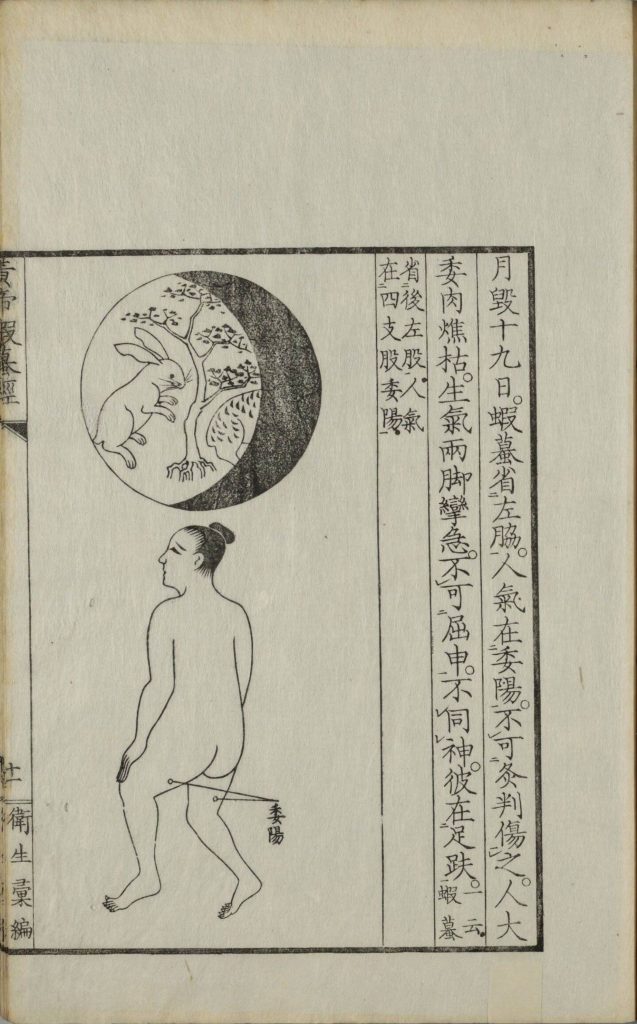 月毀十九日。蝦蟇省左脇。人氣在委陽。不可灸判傷之。人大
委肉燋枯。生氣兩脚攣急。不可屈申。不同神。彼在足趺。一云蝦蟇
省後左股人氣
在四支股委陽
委陽
黃帝蝦蟇經
十一
衛生彙編